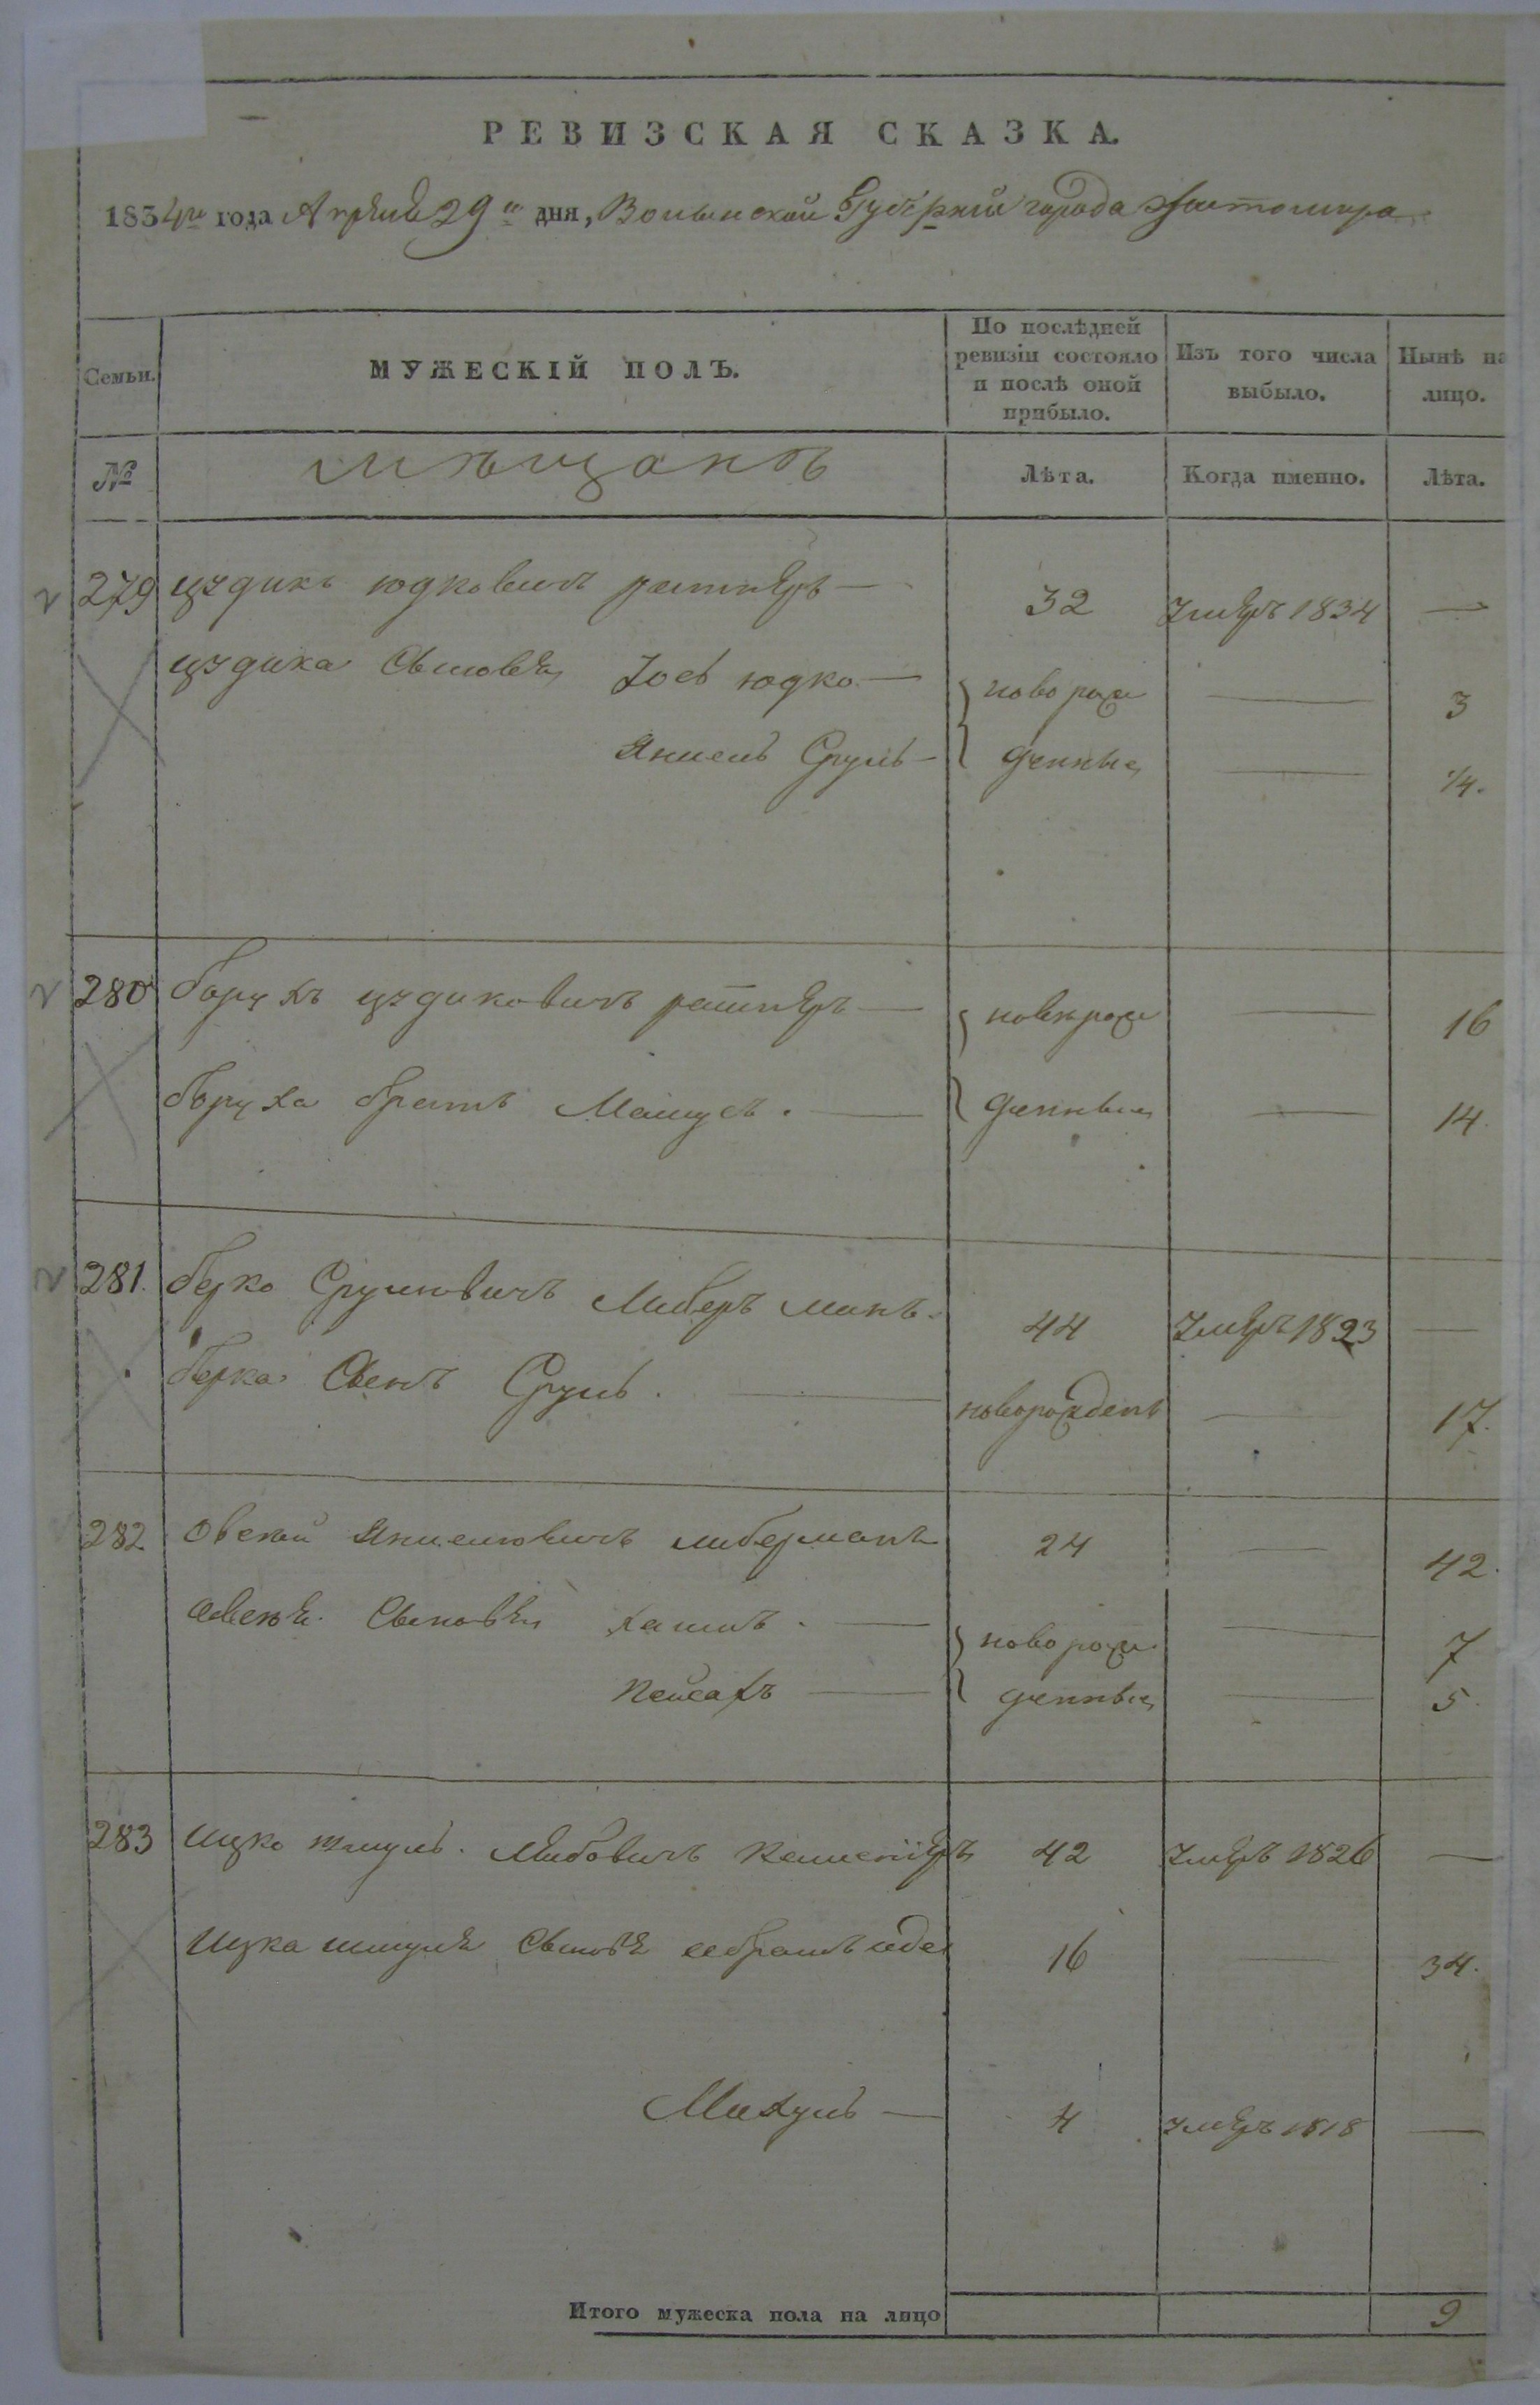 РЕВИЗСКАЯ СКАЗКА.
1834го года Апреля 29го дня, Волынской Губерній города Житомира
Семьи. МУЖЕСКІЙ ПОЛЪ. По послѣдней ревизіи состояло и послѣ оной прибыло. Изъ того числа выбыло. Нынѣ на лицо.
№ мѣщанъ Лѣта. Когда именно. Лѣта.
279 цудикъ юдковичъ ратнеръ — 32 умеръ 1834 —
цудика Сыновья Іось юдко — новорож — 3
Янкель Сруль — денныя — 1/4.
280 борухъ цудиковичъ ратнеръ — новорож — 16
боруха братъ Мошусъ. — денныя — 14.
281. берко Срулювичъ Либерманъ. 44 умеръ 1823 —
берка Сынъ Сруль. — новорожденъ — 17.
282 овсей Янкелювичъ либерманъ 24 — 42.
овсея Сыновья хаимъ. — новорож — 7
пейсахъ — денныя — 5.
283 ицко шмуль лейбовичъ 42 умеръ 1826 —
ицка шмуля Сыновья 16 — 34.
Михуль — 4 умеръ 1818 —
Итого мужеска пола на лицо 9